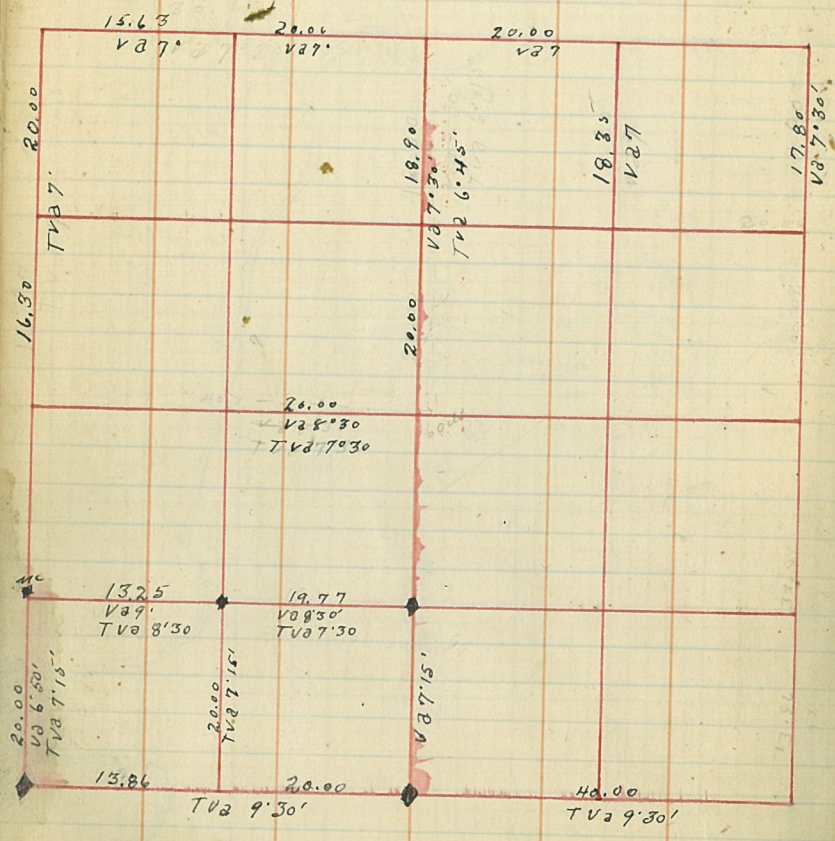 15.63
va 7°
20.00
va 7°
20.00
va 7
20.00
Tva 7'
18.90
va 7° 30'
Tva 6° 45'
18.35
va 7
17.80
va 7° 30'
16.30
20.00
va 8° 30
Tva 7° 30
20.00
Mc
13.25
va 9.
Tva 8'30
19.77
va 8 30'
Tva 7'30
20.00
va 6' 50'
Tva 7' 15'
20.00
Tva 7.15'
va 7' 15'
13.86
20.00
Tva 9'30'
40.00
Tva 9'30'